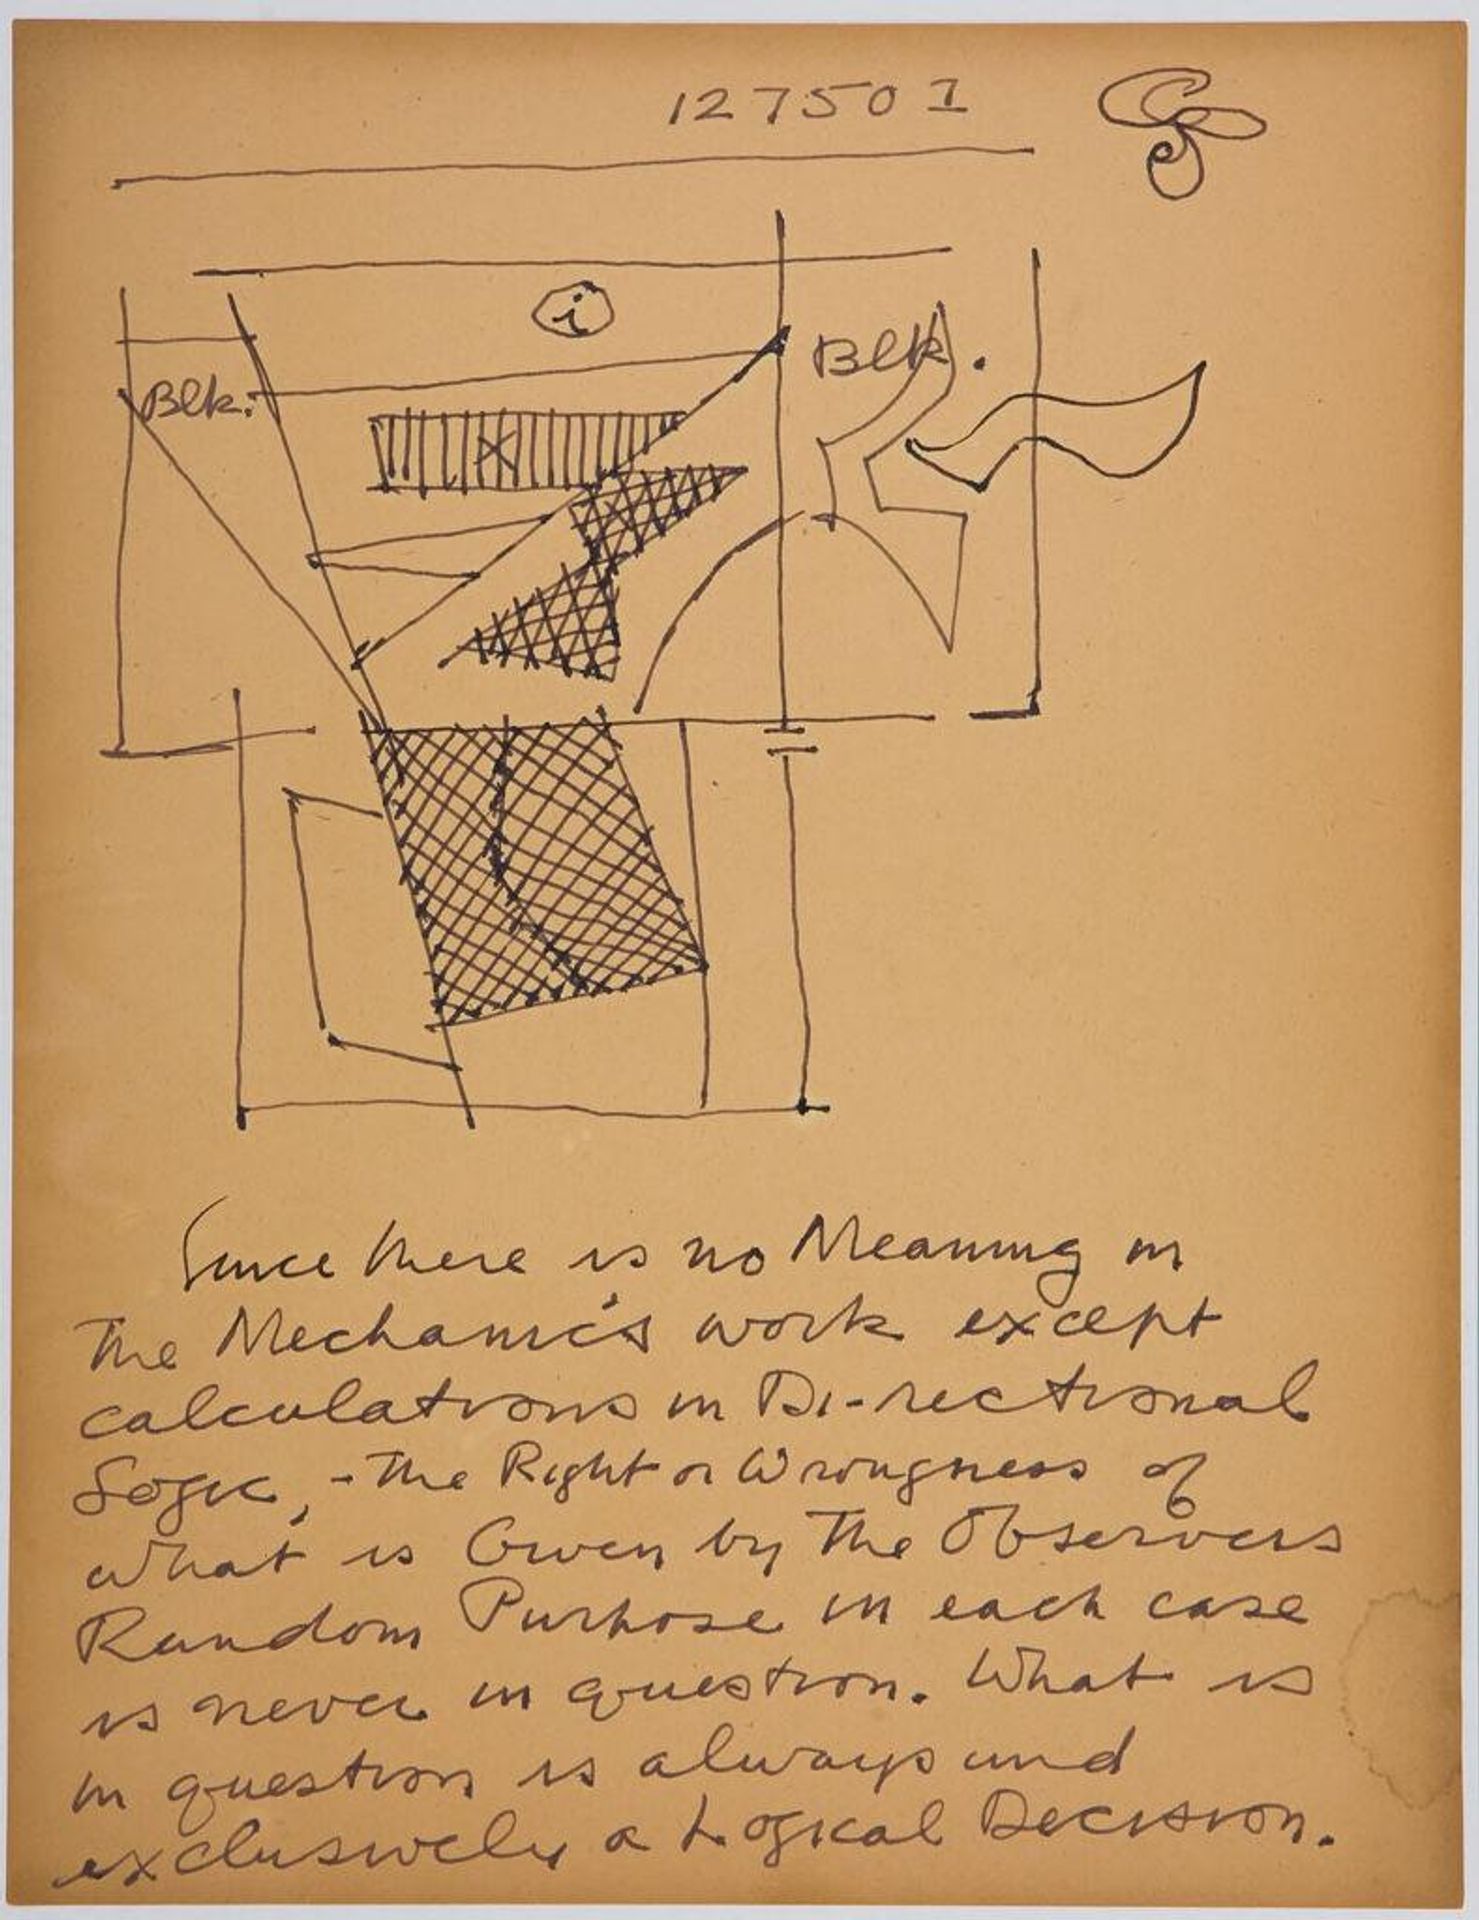 127501
i
Blk.
Blk.
X
Since there is no Meaning in
The Mechanic's work except
calculations in Di-rectional
Logic, - The Right or Wrongness of
what is Given by The Observers
Random Purpose in each case
is never in question. What is
in question is always and
exclusively a Logical Decision.